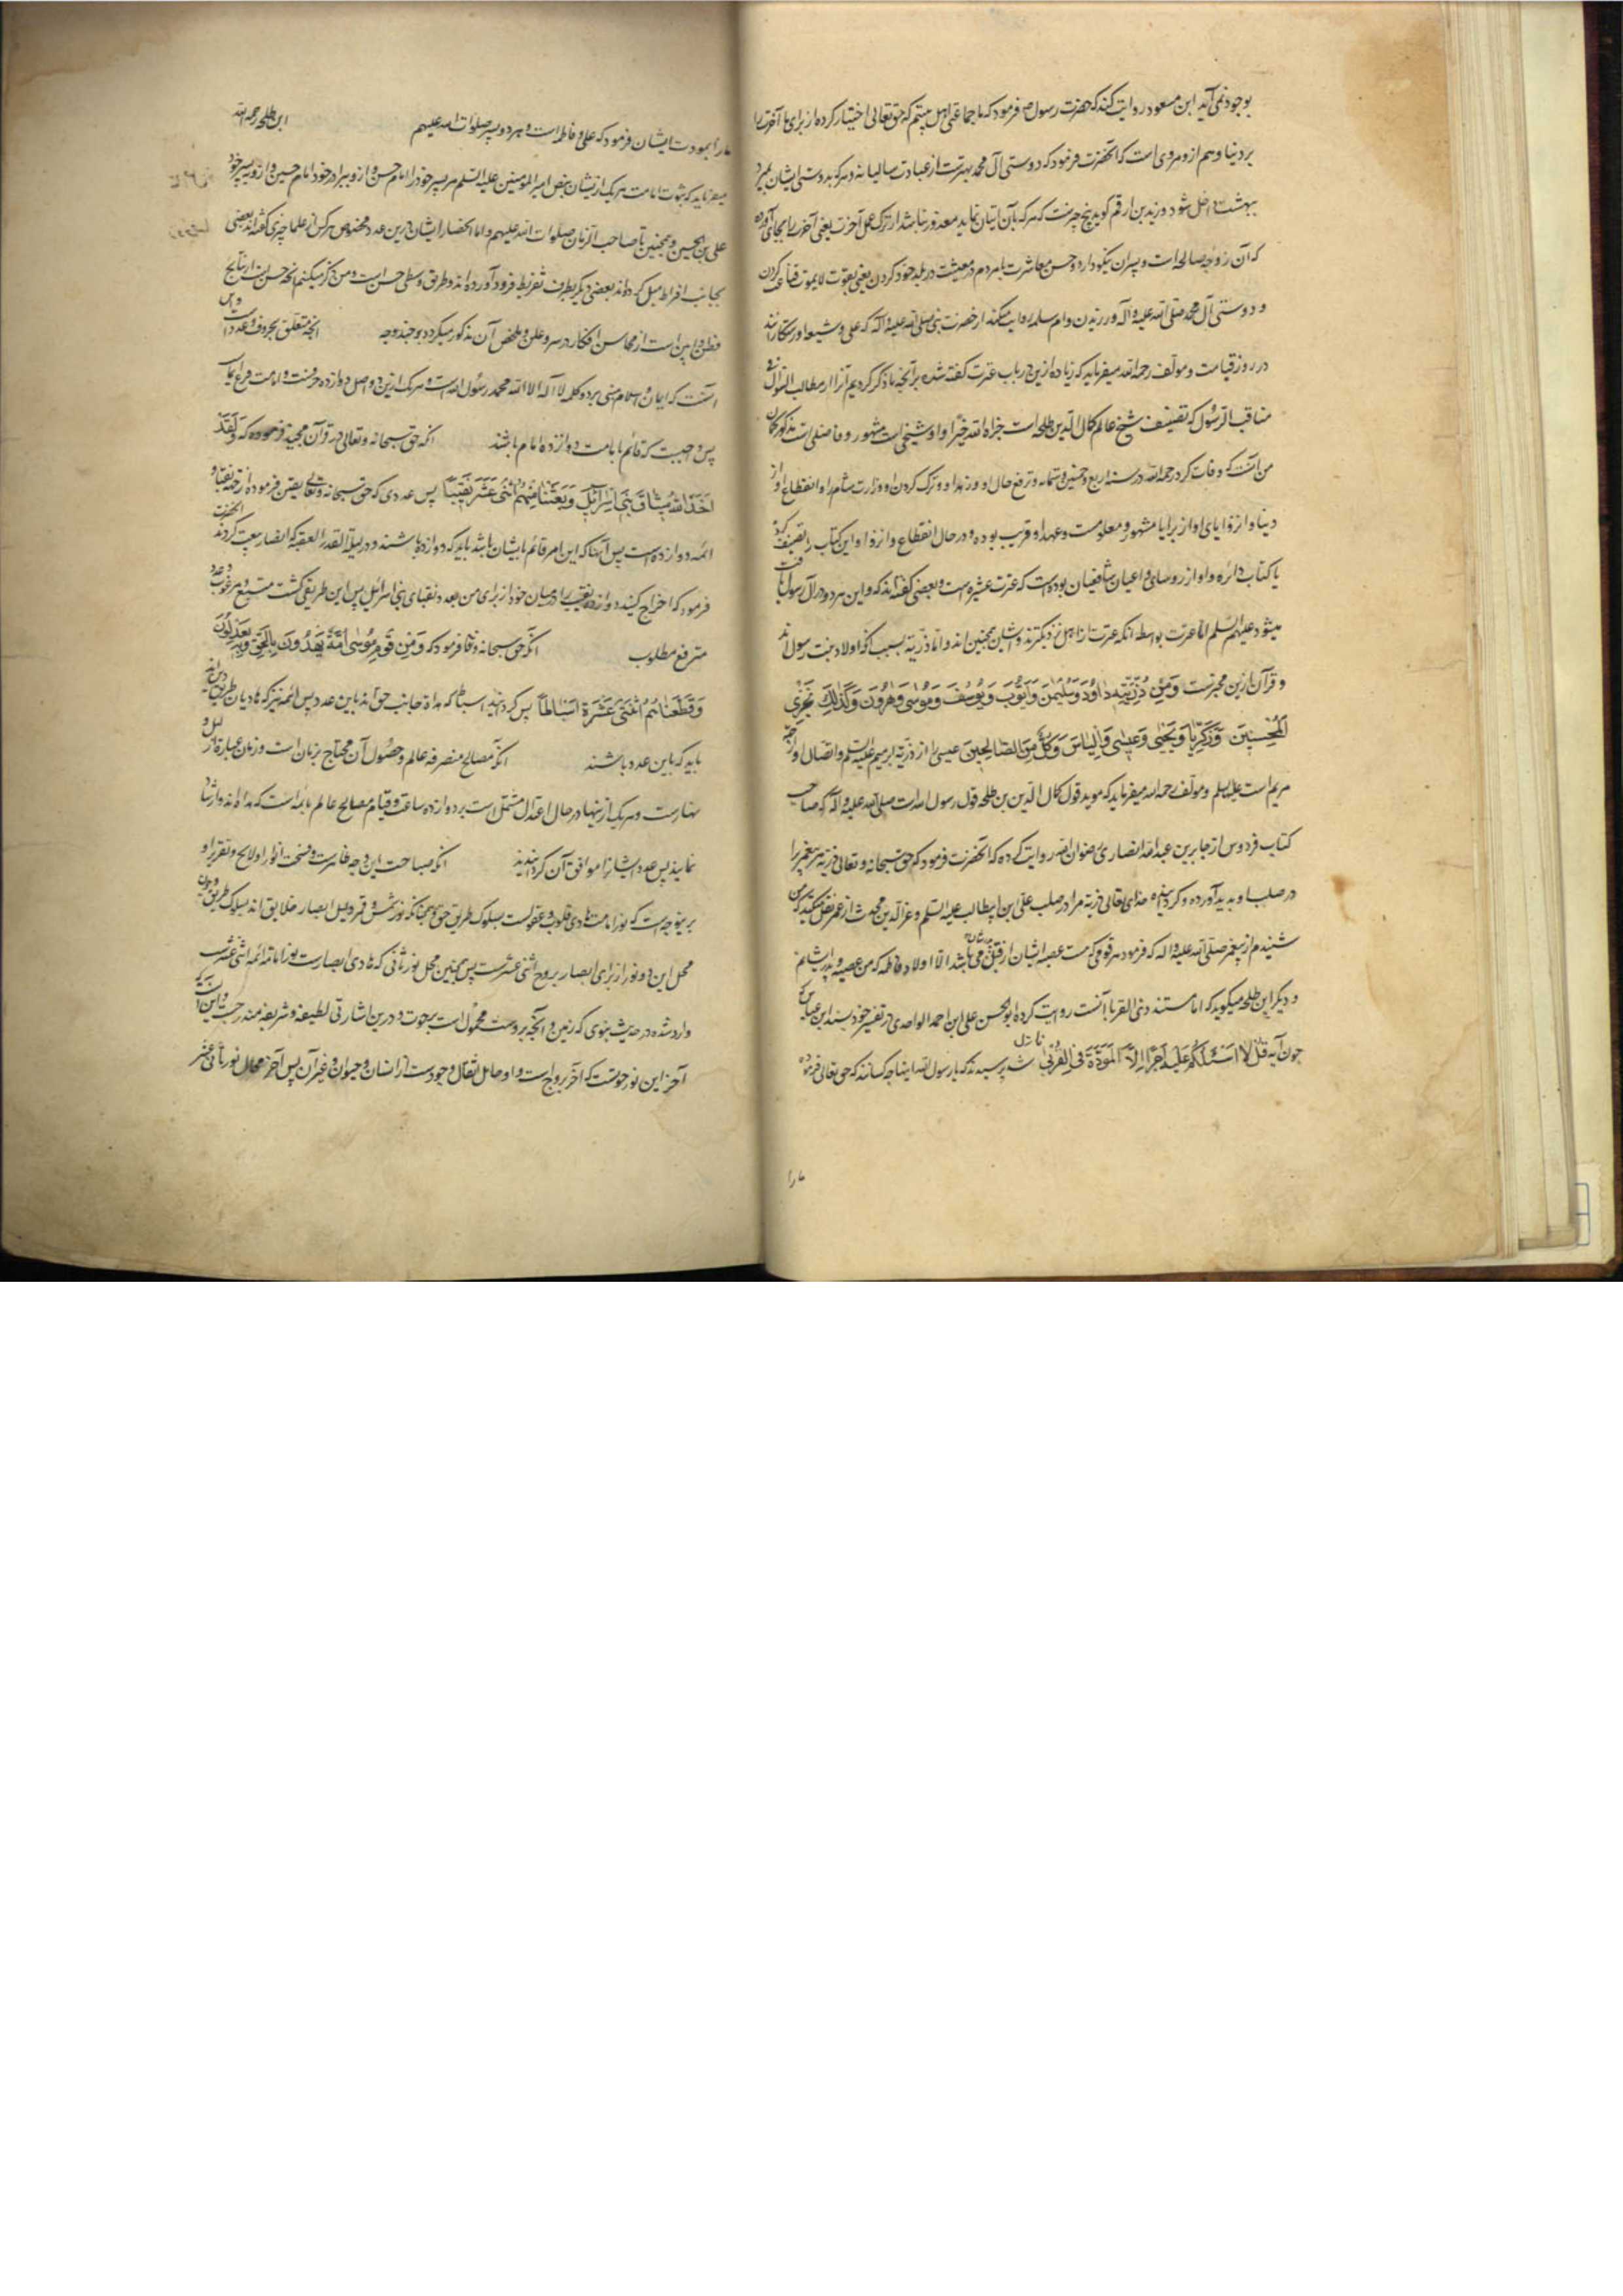 بوجود نمی آید ابن مسعود روایت کند که حضرت رسول ص فرمود که ما جماعتی اهل بیتیم که حق تعالی اختیار کرده از برای ما آخرت را
بر دنیا و هم ازو مروی است که آنحضرت فرمود که دوستی آل محمد بهترست از عبادت سالیانه و هر که بدوستی ایشان بمیرد
ببهشت داخل شود و زید بن ارقم کوید پنج چیزست که هر که بآن اتیان نماید معذور نباشد از ترک عمل آخرت یعنی آخرت را بجای آورده
که آن زوجه صالحه است و پسران نیکوداره و حسن معاشرت با مردم و معیشت در بلد خود کردن یعنی بقوت لایموت قناعت کردن
و دوستی آل محمد صلی الله علیه و آله ورزیدن و ام سلمه روایت میکند از حضرت نبی صلی الله علیه و آله که علی و شیعه او رستکارانند
در روز قیامت و مولف رحمه الله میفرماید که زیاده ازین در باب عترت کفته شده بر آنچه ما ذکر کردیم آنرا از مطالب السؤل فی
مناقب آل الرسول که تصنیف شیخ عالم کمال الدین طلحه است جزاه الله خیرا و او شیخی است مشهور و فاضلی است مذکور کمان
من آنست که وفات کرد رحمه الله در سنه اربع و خمسین و ستمایه و ترفع حال او و زهد او و ترک کردن او وزارت شام را و انقطاع او از
دنیا و انزوای او از برایا مشهور و معلومست و عهد او قریب بوده و در حال انقطاع و انزوا و این کتاب را تصنیف کرد
با کتاب دائره و او از روسای و اعیان شافعیان بوده است که عترت عشیره است و بعضی کفته اند که و این هر دو در آل رسول یافت
میشود علیهم السلم اما عترت بواسطه آنکه عترت از اهل نزدیکترند و ایشان همچنین اند و اما ذریة بسبب آنکه اولاد بنت رسول اند
و قرآن ازین مخبرست وَمِن ذُرِّیَّتِهِ دَاوُدَ وَسُلَیْمٰنَ وَأَیُّوبَ وَیُوسُفَ وَمُوسٰی وَهٰرُونَ وَکَذٰلِكَ نَجْزِی
الْمُحْسِنِینَ وَزَکَرِیَّا وَیَحْیٰی وَعِیسٰی وَإِلْیَاسَ کُلٌّ مِنَ الصَّالِحِینَ عیسی را از ذریة ابرهیم علیه السلم و اتصال او از جهة
مریم است علیها السلم و مولف رحمه الله میفرماید که موید قول کمال الدین بن طلحه قول رسول الله است صلی الله علیه و آله که صاحب
کتاب فردوس از جابر بن عبد الله انصاری رضوان الله روایت کرده که آنحضرت فرمود که حق سبحانه و تعالی ذریة هر پیغمبر را
در صلب او پدید آورده و کردانیده خدای تعالی ذریة مرا در صلب علی ابن ابیطالب علیه السلم و عز الدین محدث از عمر نقل میکند که من
شنیدم از پیغمبر صلی الله علیه و اله که فرمود هر قومی که هست عصبه ایشان از قبل پدرشان می باشد الا اولاد فاطمه که من عصبه و پدر ایشانم
و دیگر ابن طلحه میکوید که اما مستند ذی القربا آنست روایت کرده ابو الحسن علی ابن احمد الواحدی در تفسیر خود بسند ابن عباس که
چون آیه قُلْ لَا أَسْئَلُکُمْ عَلَیْهِ أَجْرًا إِلَّا الْمَوَدَّةَ فِی الْقُرْبٰی نازل شد پرسیدند که یا رسول الله اینها چه کسانند که حق تعالی فرموده
مارا
مارا بمودت ایشان فرمود که علی و فاطمه است و هر دو پسر صلوات الله علیهم ابن طلحه رحمه الله
میفرماید که ثبوت امامت هر یک از ایشان بنص امیر المومنین علیه السلم مر پسر خود را امام حسن و ازو ببرادر خود امام حسین و ازو پسر خود
علی بن الحسین و همچنین تا صاحب الزمان صلوات الله علیهم و اما انحصار ایشان درین عدد مخصوص هر کس از علما چیزی کفته اند بعضی
بجانب افراط میل کرده اند بعضی دیکر بطرف تفریط فرود آورده اند و طریق وسطی حسن است و من ذکر میکنم آنچه حسن است از نتایج
فطن و این است از محاسن افکار در سر و علن و ملخص آن مذکور میکردد بچند وجه انچه متعلق بحروف و عدد است و این
آنست که ایمان و اسلام مبنی بر دو کلمه لا اله الا الله محمد رسول الله است و هر یک ازین دو اصل دوازده حرفست و امامت فرع ایمان
پس واجبست که قائم بامامت دوازده امام باشند آنکه حق سبحانه و تعالی در قرآن مجید فرموده که وَلَقَدْ
أَخَذَ اللهُ مِیثَاقَ بَنِی إِسْرَائِیلَ وَبَعَثْنَا مِنْهُمُ اثْنَیْ عَشَرَ نَقِیبًا پس عددی که حق سبحانه و تعالی تعین فرموده از جهة نقبا و
ائمه دوازده است پس آنها که این امر قائم بایشان باشد باید که دوازده باشند و در لیلة القدر العقبه که انصار بیعت کردند آنحضرت
فرمود که اخراج کنید دوازده نقیب را در میان خود از برای من بعدد نقبای بنی اسرائیل پس این طریقی کشت متبع و عدد مرغوب
مترفع مطلوب آنکه حق سبحانه و تعا فرمود که وَمِن قَوْمِ مُوسٰی أُمَّةٌ یَهْدُونَ بِالْحَقِّ وَبِهِ یَعْدِلُونَ
وَقَطَّعْنَاهُمُ اثْنَتَیْ عَشْرَةَ أَسْبَاطًا پس کردانید اسباط که هداة جانب حق اند باین عدد پس ائمه نیز که هادیان طریق دین اند
باید که باین عدد باشند آنکه مصالح متصرفه عالم و حصول آن محتاج بزمان است و زمان عبارة از لیل و
نهارست و هر یک ازینها در حال اعتدال مشتمل است بر دوازده ساعت و قیام مصالح عالم بائمه است که هداة اند و ارشاد
نمایند پس عدد ایشانرا موافق آن کردانیدند آنکه صباحت این وجه ظاهرست و نسخت انوار او لایح و تقریر او
برینوجه است که نور امامت هادی قلوب و عقولست بسلوک طریق حق همچنانکه نور شمس و قمر دلیل ابصار خلایق اند بسلوک طریق و چون
محل این دو نور از برای ابصار بروج اثنی عشرست پس همچنین محل نور ثانی که هادی ابصارت نور امامة ائمه اثنی عشرست
وارد شده در حدیث نبوی که زمین و آنچه بروست محمول است بر حوت و درین اشارتی لطیفه و شریفه مندرجست و این است که
آخر این نور حوتست که آخر بروج است و او حامل ثقال وجودست از انسان و حیوان و غیر آن پس آخر محال نور ثانی عشر